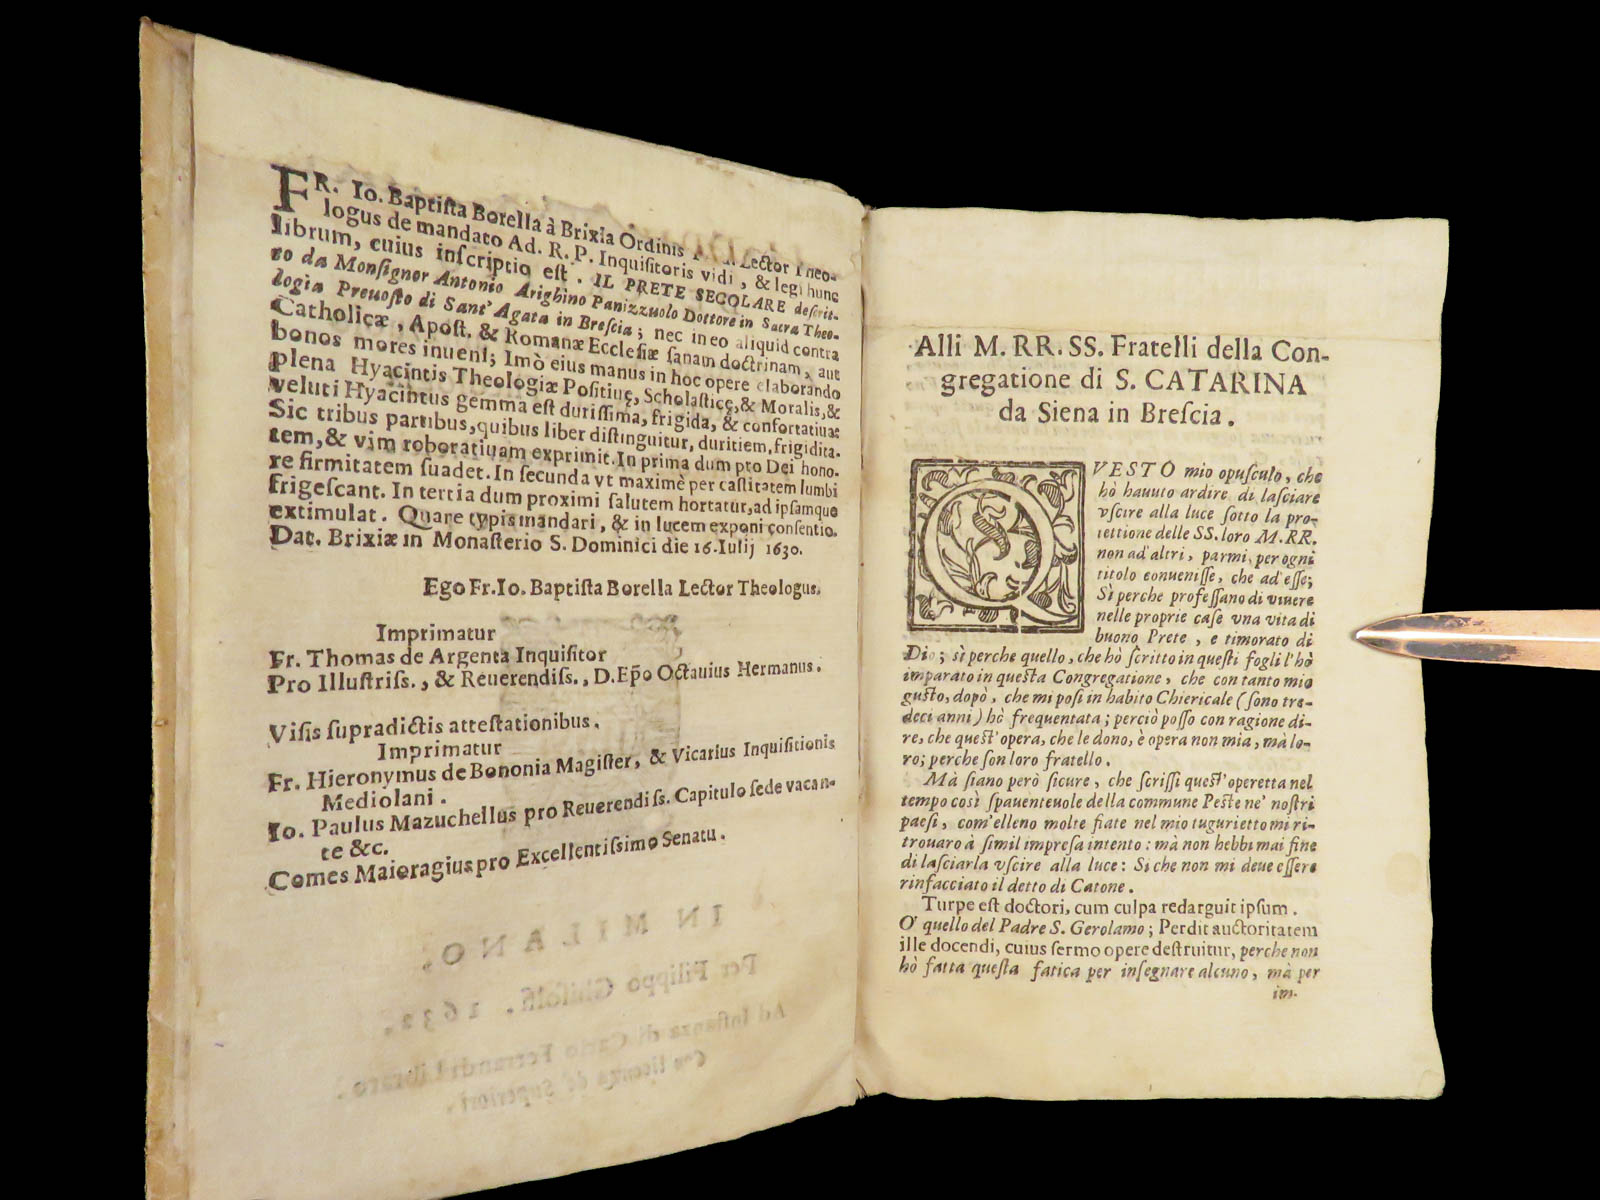 FR. Io. Baptiſta Borella à Brixia Ordinis Lector Theo-
logus de mandato Ad. R. P. Inquiſitoris vidi, & legi hunc
librum, cuius inſcriptio eſt. IL PRETE SECOLARE deſcrit-
to da Monſignor Antonio Arighino Panizzuolo Dottore in Sacra Theo-
logia Preuoſto di Sant'Agata in Breſcia; nec in eo aliquid contra
Catholicæ, Apoſt. & Romanæ Eccleſiæ ſanam doctrinam, aut
bonos mores inueni; Imò eius manus in hoc opere elaborando
plena Hyacintis Theologiæ Poſitiuę, Scholaſticę, & Moralis, &
veluti Hyacinthus gemma eſt duriſſima, frigida, & confortatiua:
Sic tribus partibus, quibus liber diſtinguitur, duritiem, frigidita-
tem, & vim roboratiuam exprimit. In prima dum pro Dei hono-
re firmitatem ſuadet. In ſecunda vt maximè per caſtitatem lumbi
frigeſcant. In tertia dum proximi ſalutem hortatur, ad ipſamque
extimulat. Quare typis mandari, & in lucem exponi conſentio.
Dat. Brixiæ in Monaſterio S. Dominici die 16. Iulij 1630.
Ego Fr. Io. Baptiſta Borella Lector Theologus.
Imprimatur
Fr. Thomas de Argenta Inquiſitor
Pro Illuſtriſs., & Reuerendiſs., D. Ep̃o Octauius Hermanus.
Viſis ſupradictis atteſtationibus.
Imprimatur
Fr. Hieronymus de Bononia Magiſter, & Vicarius Inquiſitionis
Mediolani.
Io. Paulus Mazuchellus pro Reuerendiſs. Capitulo ſede vacan-
te &c.
Comes Maioragius pro Excellentiſſimo Senatu.
IN MILANO,
Per Filippo Ghiſolfi. 1632.
Ad Inſtanza di Carlo Ferrandi Libraro.
Con licenza de' Superiori.
Alli M. RR. SS. Fratelli della Con-
gregatione di S. CATARINA
da Siena in Breſcia.
QVESTO mio opuſculo, che
hò hauuto ardire di laſciare
vſcire alla luce ſotto la pro-
tettione delle SS. loro M. RR.
non ad altri, parmi, per ogni
titolo conueniſſe, che ad eſſe;
Sì perche profeſſano di viuere
nelle proprie caſe vna vita di
buono Prete, e timorato di
Dio; sì perche quello, che hò ſcritto in queſti fogli l'hò
imparato in queſta Congregatione, che con tanto mio
guſto, dopò, che mi poſi in habito Chiericale (ſono tre-
deci anni) hò frequentata; perciò poſſo con ragione di-
re, che queſt'opera, che le dono, è opera non mia, mà lo-
ro; perche ſon loro fratello.
Mà ſiano però ſicure, che ſcriſſi queſt'operetta nel
tempo così ſpauenteuole della commune Peſte ne' noſtri
paeſi, com'elleno molte fiate nel mio tugurietto mi ri-
trouaro à ſimil impreſa intento: mà non hebbi mai fine
di laſciarla vſcire alla luce: Si che non mi deue eſſere
rinfacciato il detto di Catone.
Turpe eſt doctori, cum culpa redarguit ipſum.
O' quello del Padre S. Gerolamo; Perdit auctoritatem
ille docendi, cuius ſermo opere deſtruitur, perche non
hò fatta queſta fatica per inſegnare alcuno, mà per
im-